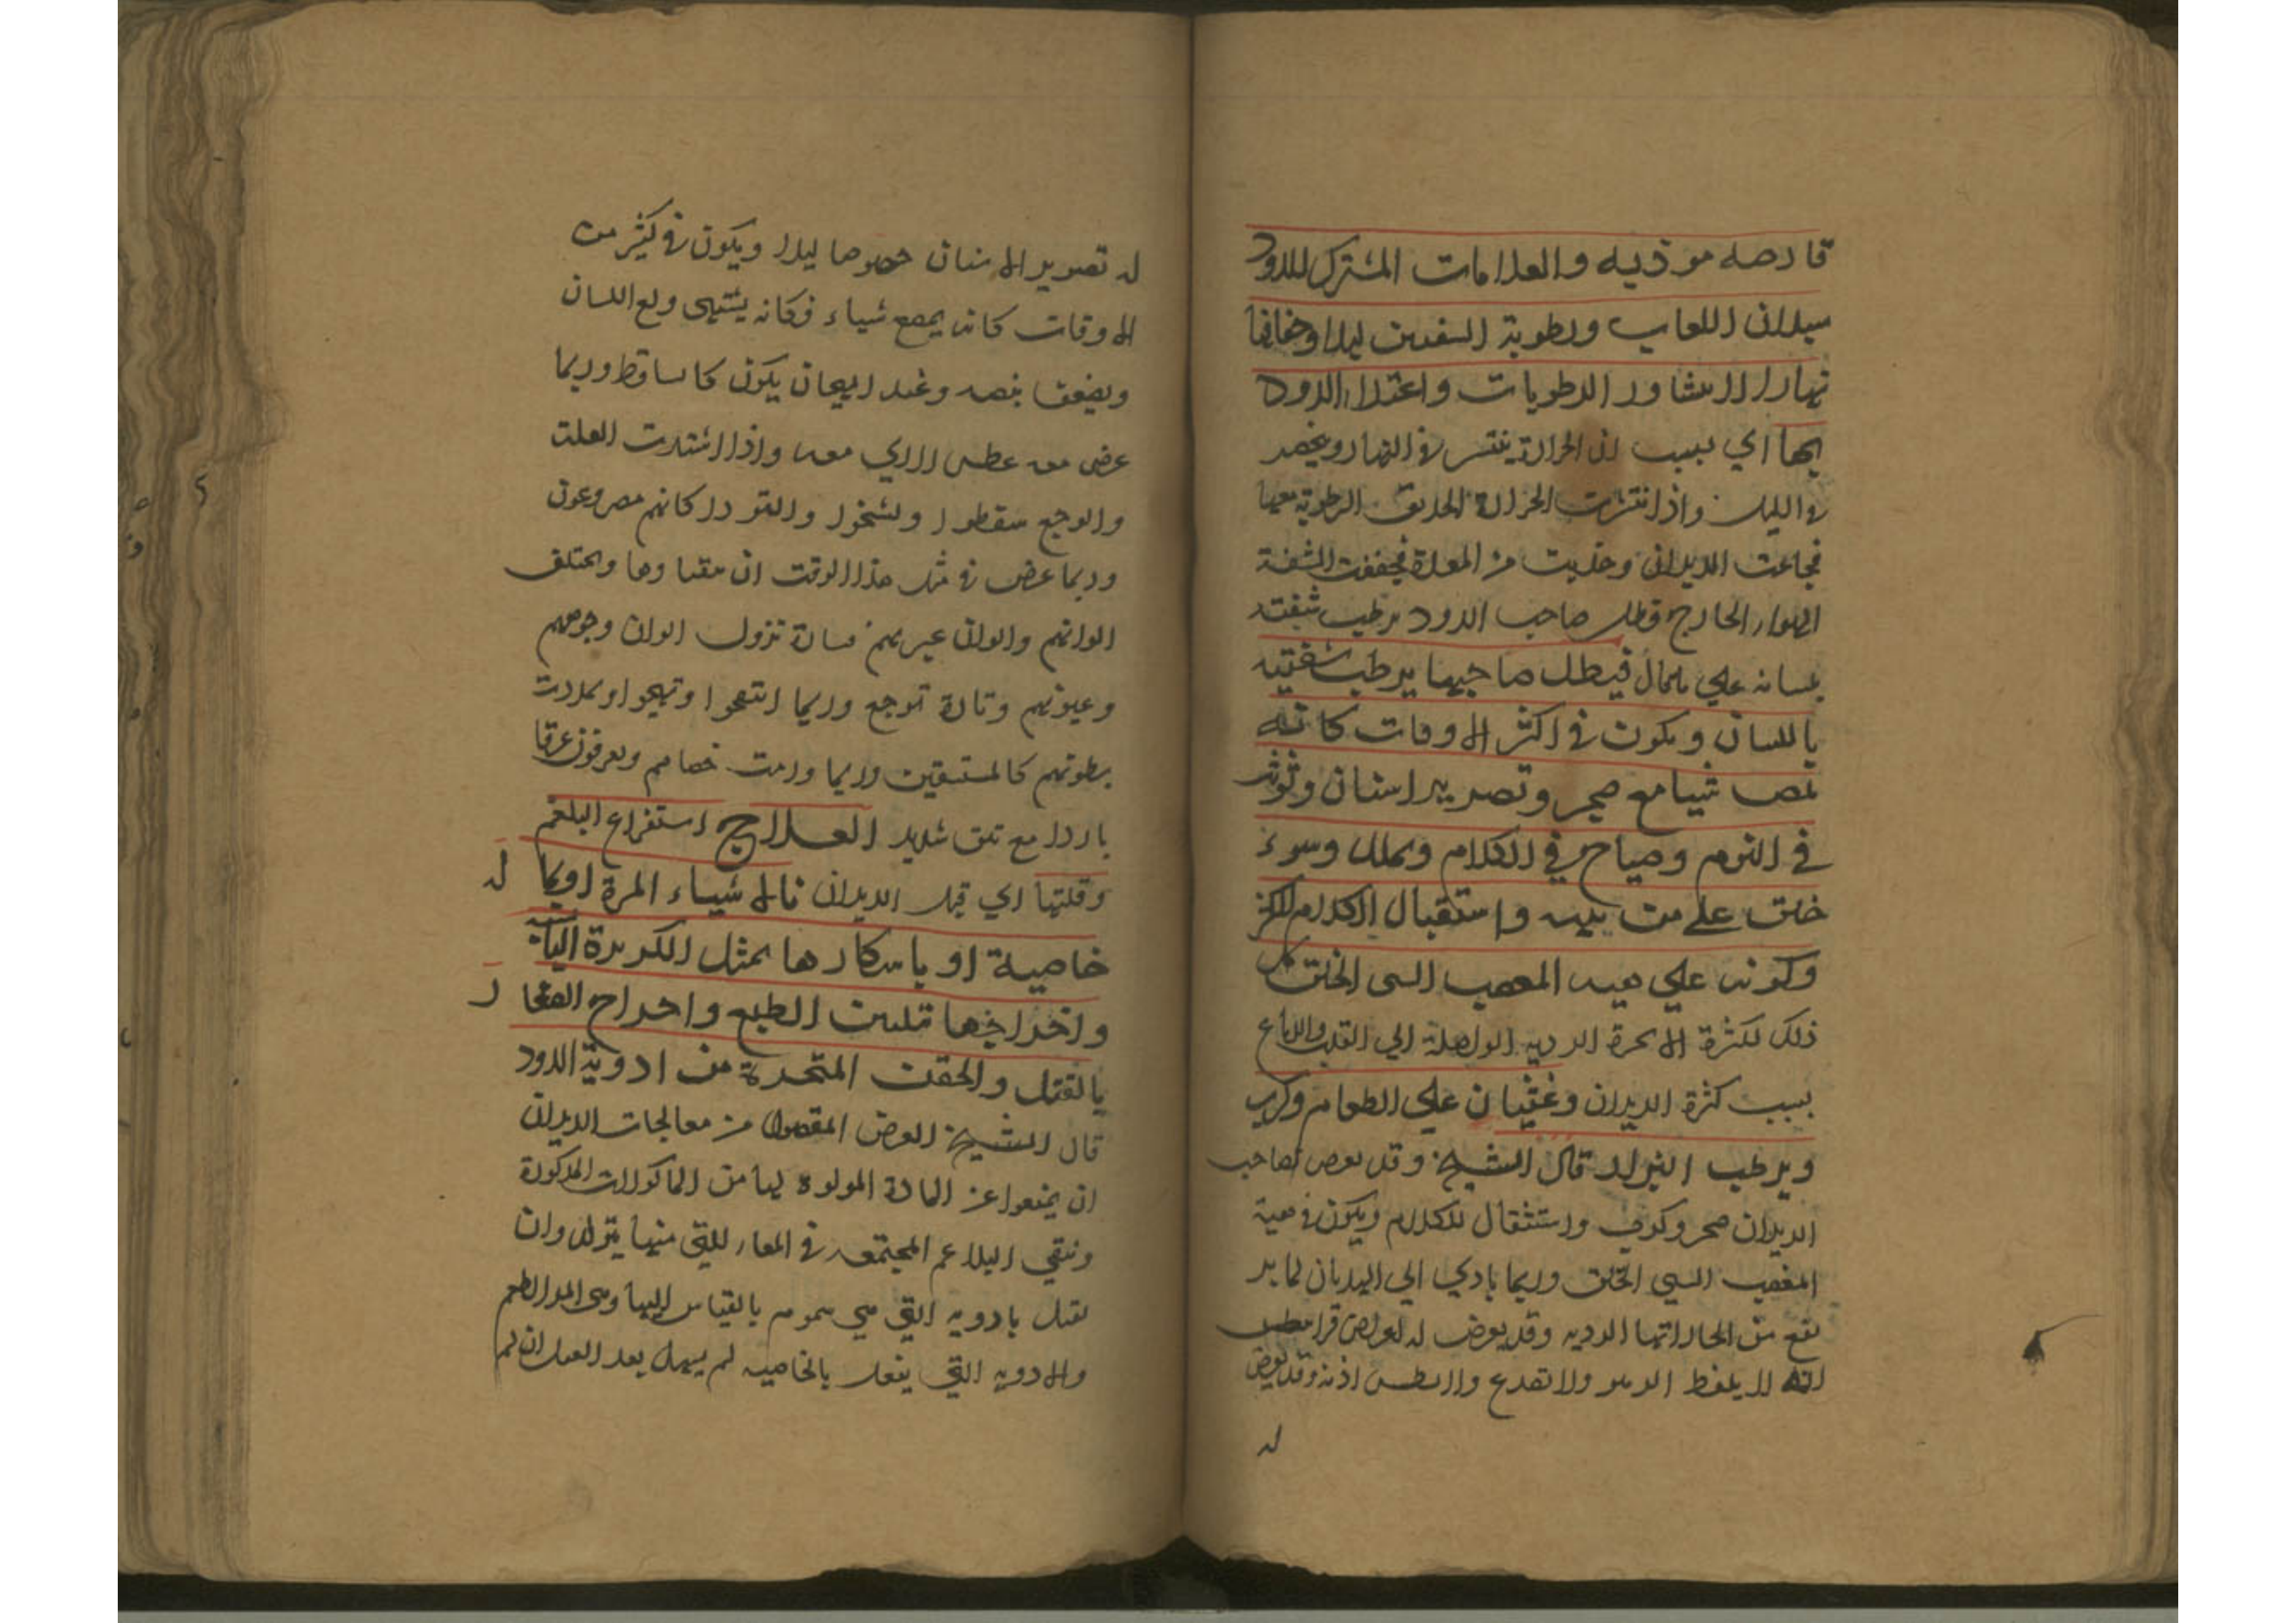 قارصه موذيه والعلامات المشترك للدود
سيلان اللعاب ورطوبة الشفتين ليلا وجفافها
نهارا لانتشار الرطوبات واغتذاء الدود
بها اي بسبب ان الحرارة ينتشر في النهار وينحصر
في الليل واذا انتشرت الحرارة الرطوبة معها
فجاعت الديدان وجذبت من المعدة فجففت الشفة
الهواء الخارج فظل صاحب الدود يرطب شفته
بلسانه علي ما قال فيظل صاحبها يرطب شفتيه
باللسان ويكون في اكثر الاوقات كانه
يمص شيا مع ضجر وتصرير اسنان وتوثب
في النوم وصياح في الكلام وتملل وسوء
خلق علي من ينبهه واستقبال الكلام
وكونه علي هيه المغضب السي الخلق كل
ذلك لكثرة الابخرة الرديه الواصلة الي القلب والدماغ
بسبب كثرة الديدان وغثيان علي الطعام وكرب
ويرطب البراز قال الشيخ وقد يعرض لصاحب
الديدان ضجر وكرب واستثقال للكلام ويكون في هية
المغضب السي الخلق وربما يادي الي الهذيان لما ير
تفع من بخاراتها الرديه وقد يعرض له اعراض قرانيطس
الا انه لا يلفظ الزبير ولا تصدع ولا يطن اذنه وقد يعرض
له
له تصرير الاسنان خصوصا ليلا ويكون في كثير من
الاوقات كانه يمضغ شياء فكانه يشتهي ولع اللسان
ويضعف نبضه وعند الهيجان يكون كالساقط وربما
عرض معه عطس لا ري معه واذا اشتدت العلة
والوجع سقطوا وتشنجوا والتووا كانهم مصروعون
وربما عرض في مثل هذا الوقت ان يتقياوها ويختلف
الوانهم والوان عيونهم فتارة تزول الوان وجوههم
وعيونهم وتارة ترجع وربما انتفخوا وتهيجوا وتمددت
بطونهم كالمستسقين وربما ورمت خصاهم ويعرقون عرقا
باردا مع نتن شديد العلاج استفراغ البلغم
وقتلها اي قتل الديدان بالاشياء المرة او بما له
خاصية او باسكارها بمثل الكزبرة اليابسه
واخراجها تليين الطبع واخراج الصفرا
بالفتل والحقن المتخذة من ادوية الدود
قال الشيخ الغرض المقصود من معالجات الديدان
ان يمنعوا عن المادة المولدة لها من الماكولات المذكورة
وتنقي البلاغم المجتمعه في المعاء للتي منها يتولد وان
تقتل بادويه التي هي سموم بالقياس اليها وهي المر الطعم
والادويه التي يفعل بالخاصيه ثم يسهل بعد القتل ان لم